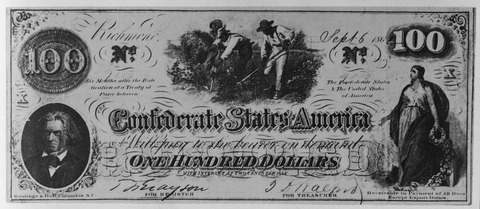 Richmond, Sept 6 186
No. No.
100 100
Six Months after the Rati-
fication of a Treaty of
Peace between
The Confederate States
& The United States
of America
Confederate States of America
Will pay to the bearer on demand
ONE HUNDRED DOLLARS
WITH INTEREST AT TWO CENTS PER DAY
FOR REGISTER
FOR TREASURER
Keatinge & Ball, Columbia S.C.
Receivable in Payment of All Dues
Except Export Duties.